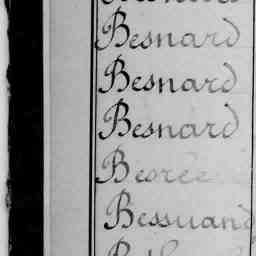 Besnard
Besnard
Besnard
Besrée
Bessuand